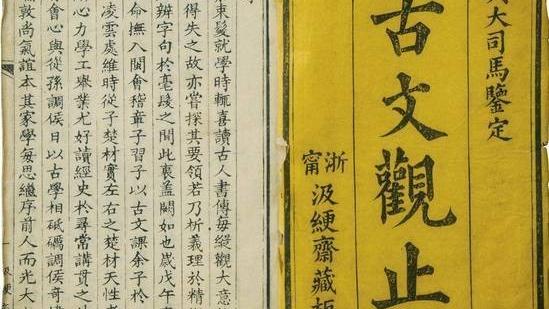 大司馬鑒定
古文觀止
浙甯
汲綆齋藏板
束髮就學時輒喜讀古人書傳每縱觀大意
得失之故亦嘗探其要領若乃析義理於精
辨字句於毫髮之間此衷蓋闕如也歲戊午
命撫入閩會稽章子習子以古文課余子於
凌雲處維時從子楚材實左右之楚材天性
心力學工舉業尤好讀經史於尋常講貫之
會心與從孫調侯日以古學相砥礪調侯奇
敦尚氣誼本其家學每思繼序前人而光大
一 汲綆